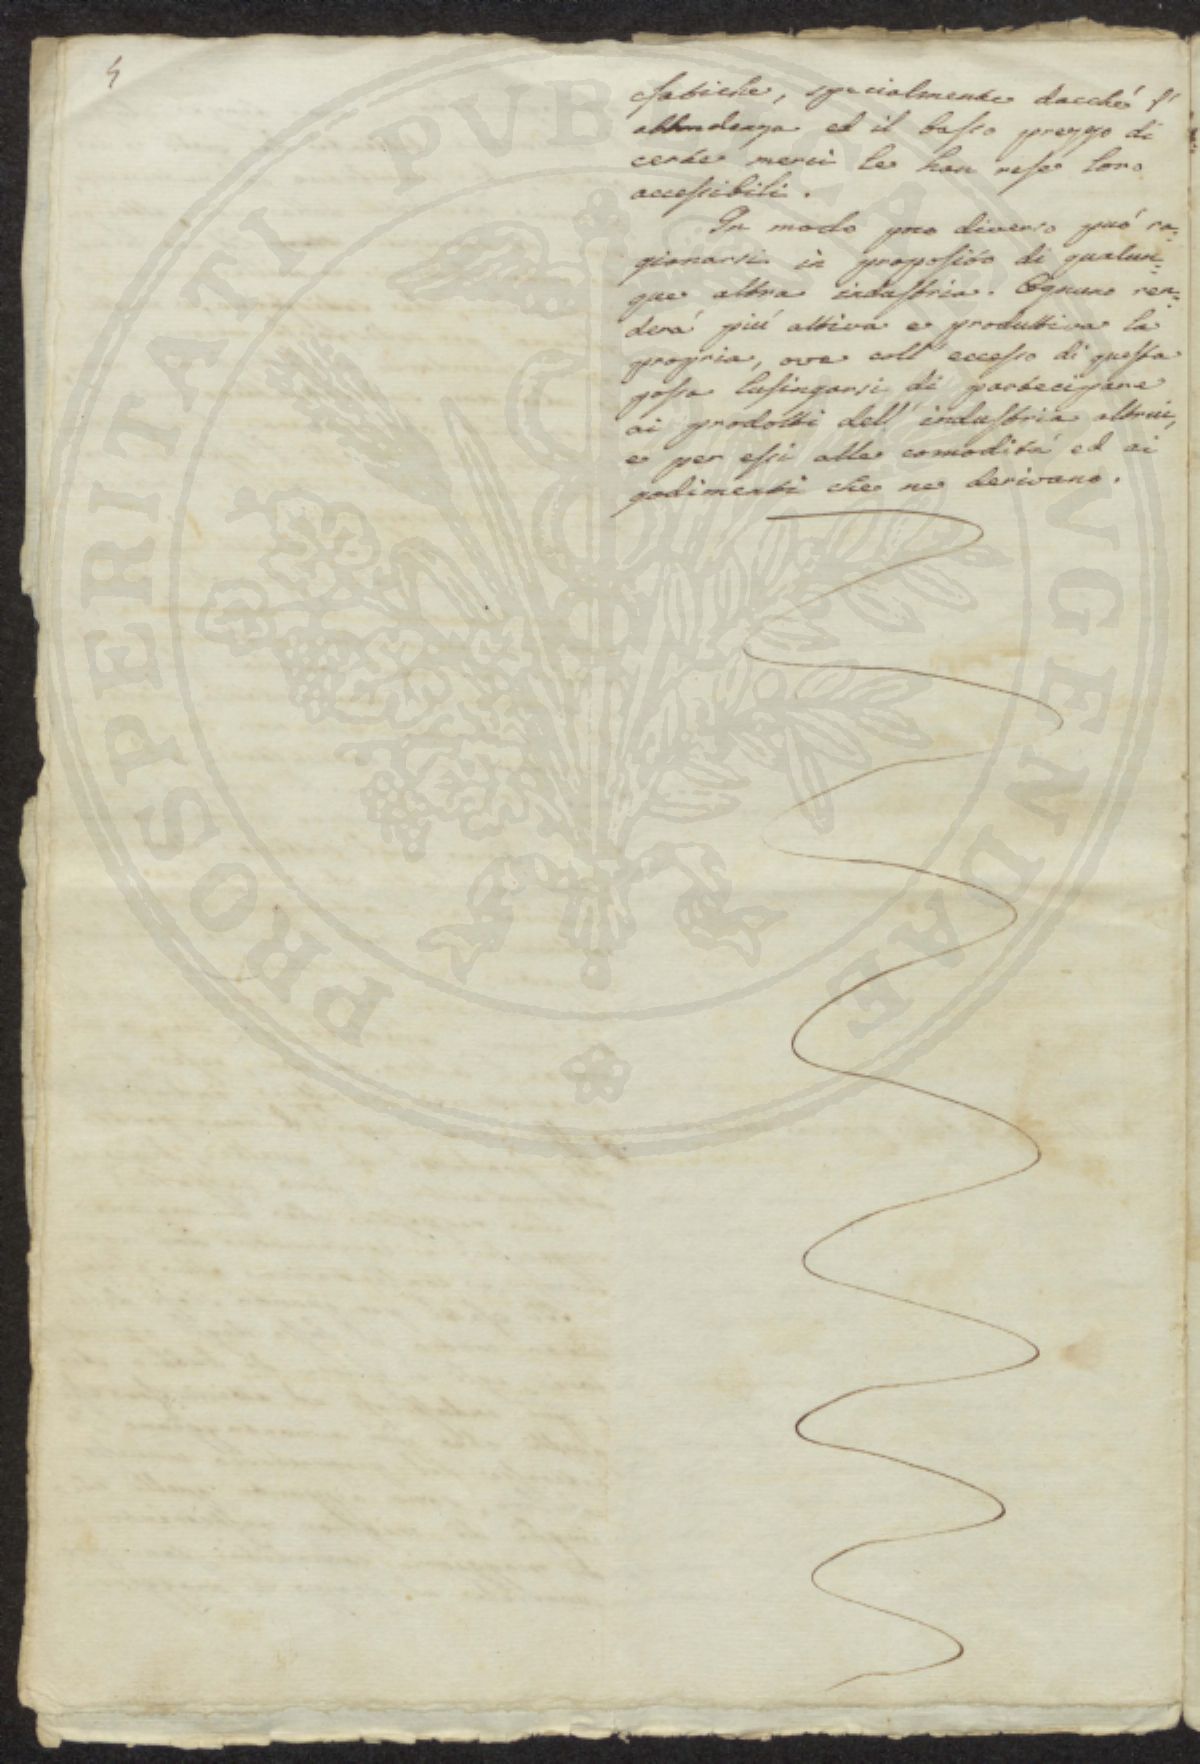 4
esotiche, specialmente dacchè l'
abbondanza ed il basso prezzo di
certe merci le han rese loro
accessibili.
In modo poco diverso può ra=
gionarsi in proposito di qualun=
que altra industria. Ognuno ren=
derà più attiva e produttiva la
propria, ove coll'eccesso di questa
possa lusingarsi di partecipare
ai prodotti dell'industria altrui,
e per essi alle comodità ed ai
godimenti che ne derivano.
PROSPERITATI PVBLICAE AVGENDAE